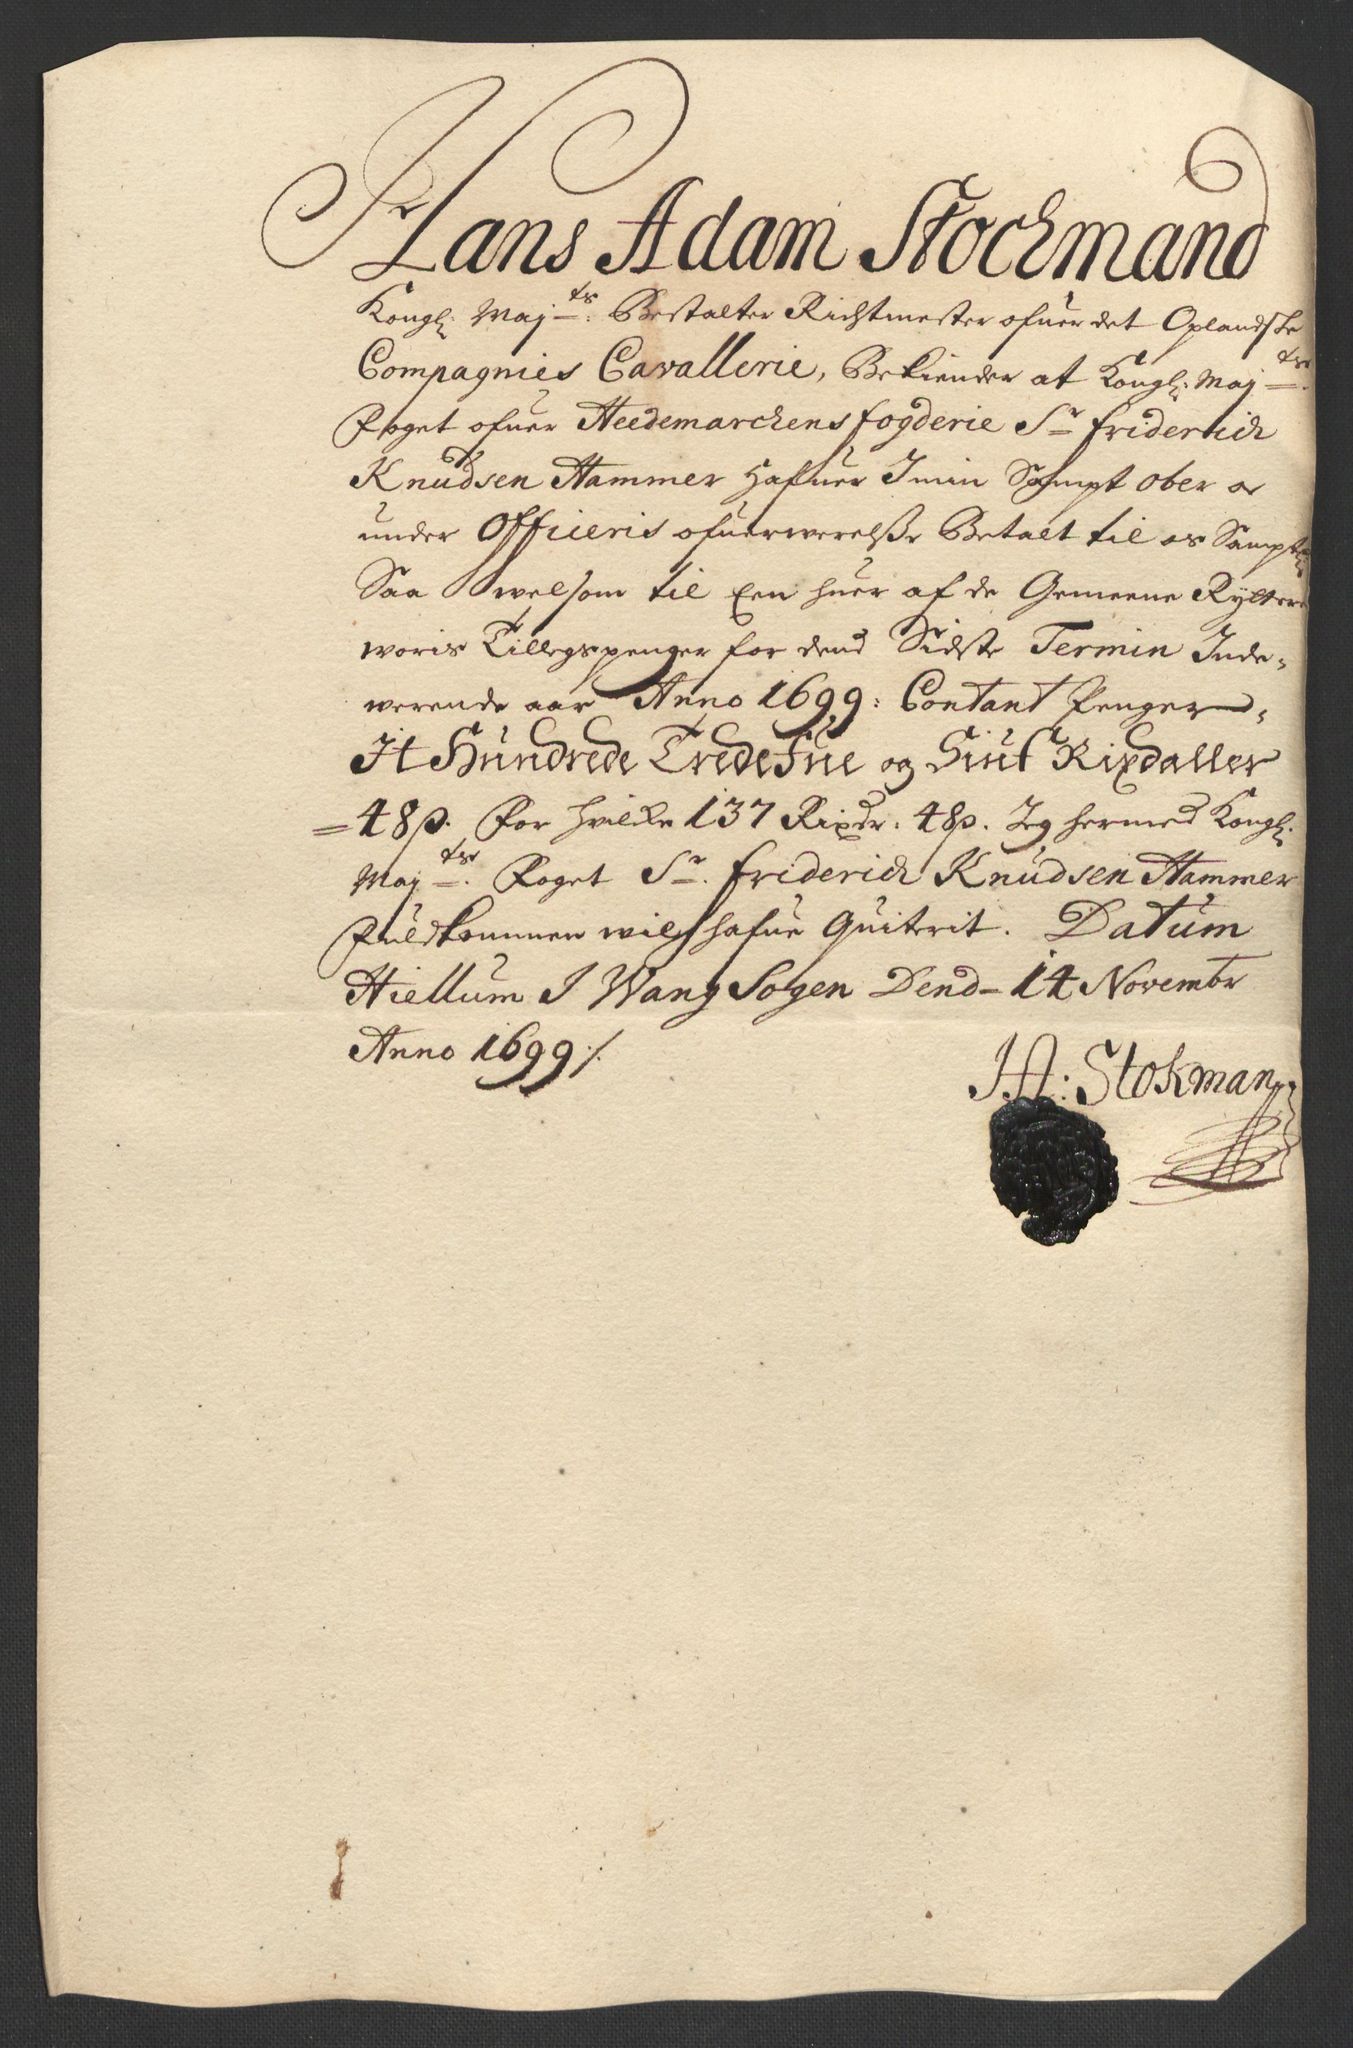 Hans Adam Stochmand
Kongl: Maj:ts Bestalter Richtmester ofuer det Oplandske
Compagnies Cavallerie, Bekiender at Kongl: Maj:ts
Foget ofuer Heedemarchens fogderie Sr friderich
Knudsen Hammer Hafuer I min Sampt ober oc
under Officeris ofuerwerelsße Betalt til os Samptl:
Saa welsom til Een huer af de Gemeene Ryttere
woris Tillegspenger for dend Sidste Termin Inde-
werende aar Anno 1699: Contant Penger,
It Hundrede Tredefue og Siuf Rixdaller
=48ß. For huilcke 137 Rixdr. 48ß. Jeg hermed Kongl:
Maj:ts Foget Sr. friderich Knudsen Hammer
fuldkommen wil hafue Quiterit. Datum
Hiellum I Wang Sogen Dend 14 Novembr
Anno 1699 ./.
HA: Stokman